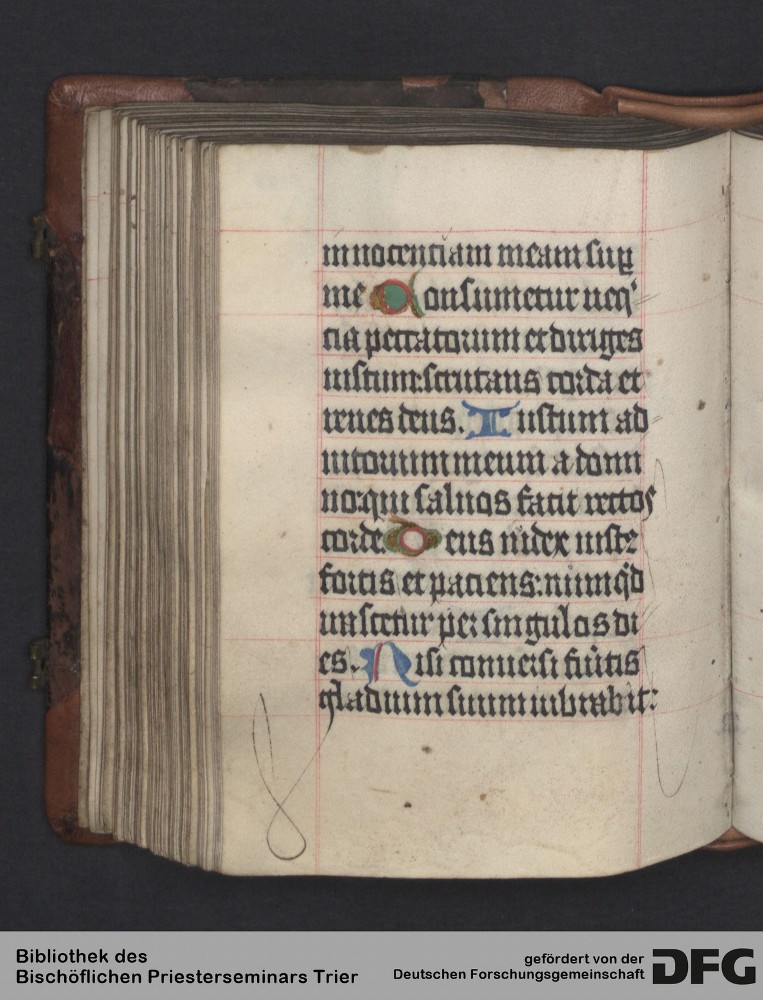 innocentiam meam sup
me Consumetur neq'
cia peccatorum et diriges
iustum: scrutans corda et
renes deus. Iustum ad
iutorium meum a domi
no: qui saluos facit rectos
corde. Deus iudex iuste
fortis et paciens: nūmqd
irascetur per singulos di
es. Nisi conuersi fūitis
gladium suum uibrabit:
Bibliothek des
Bischöflichen Priesterseminars Trier
gefördert von der
Deutschen Forschungsgemeinschaft
DFG